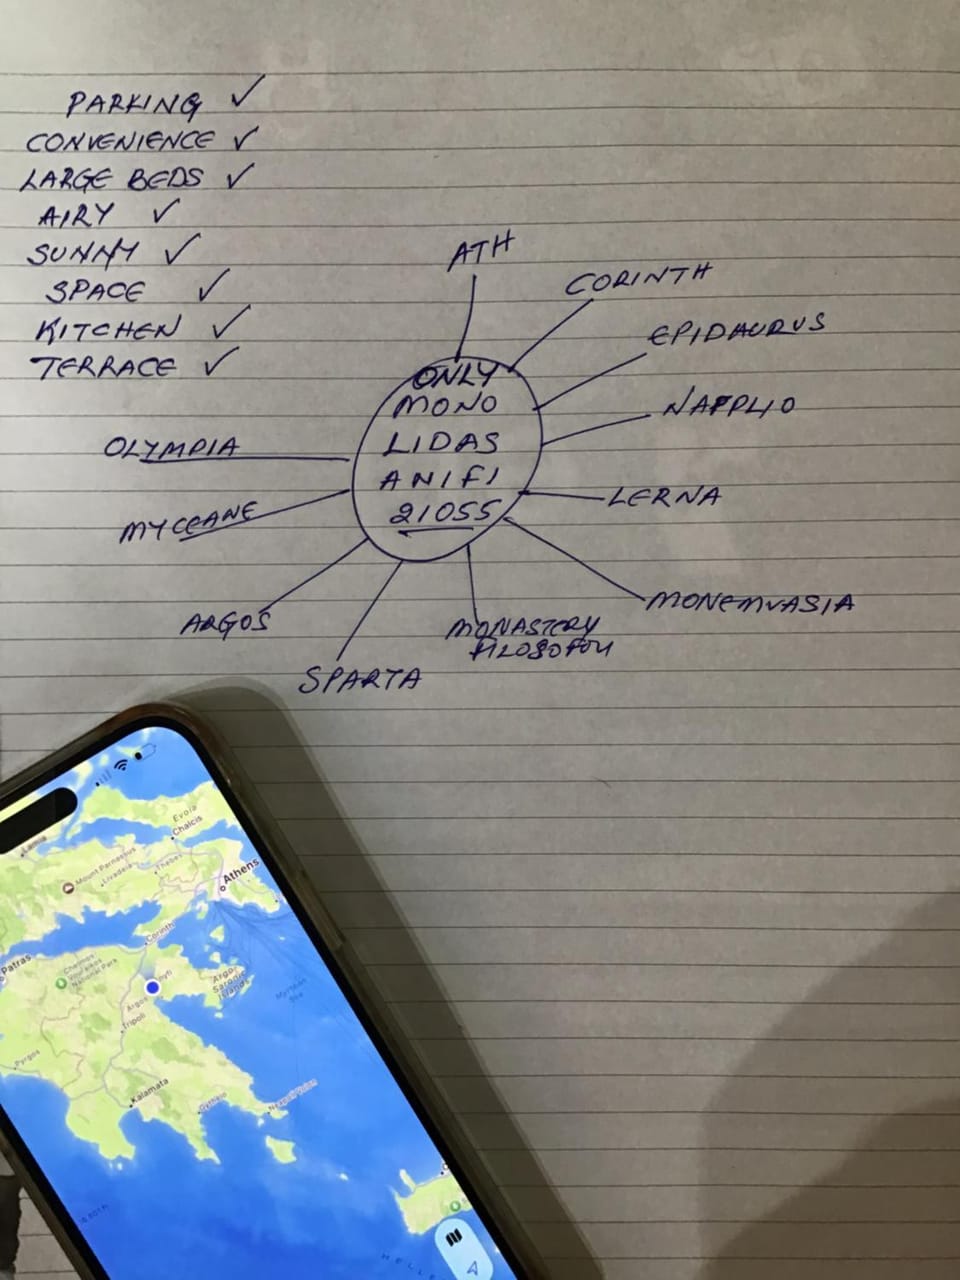 PARKING ✓
CONVENIENCE ✓
LARGE BEDS ✓
AIRY ✓
SUNNY ✓
SPACE ✓
KITCHEN ✓
TERRACE ✓
ATH
CORINTH
EPIDAURUS
NAFPLIO
LERNA
MONEMVASIA
MONASTERY
FILOSOFOU
SPARTA
ARGOS
MYCEANE
OLYMPIA
ONLY
MONO
LIDAS
ANIFI
21055
Lamia
Evoia
Chalcis
Mount Parnassus
Livadeia
Thebes
Athens
Patras
Corinth
Chelmos
Vouraikos
National Park
Argo
Saronic
Islands
Argos
Tripoli
Myrtoan
Sea
Pyrgos
Kalamata
Gytheio